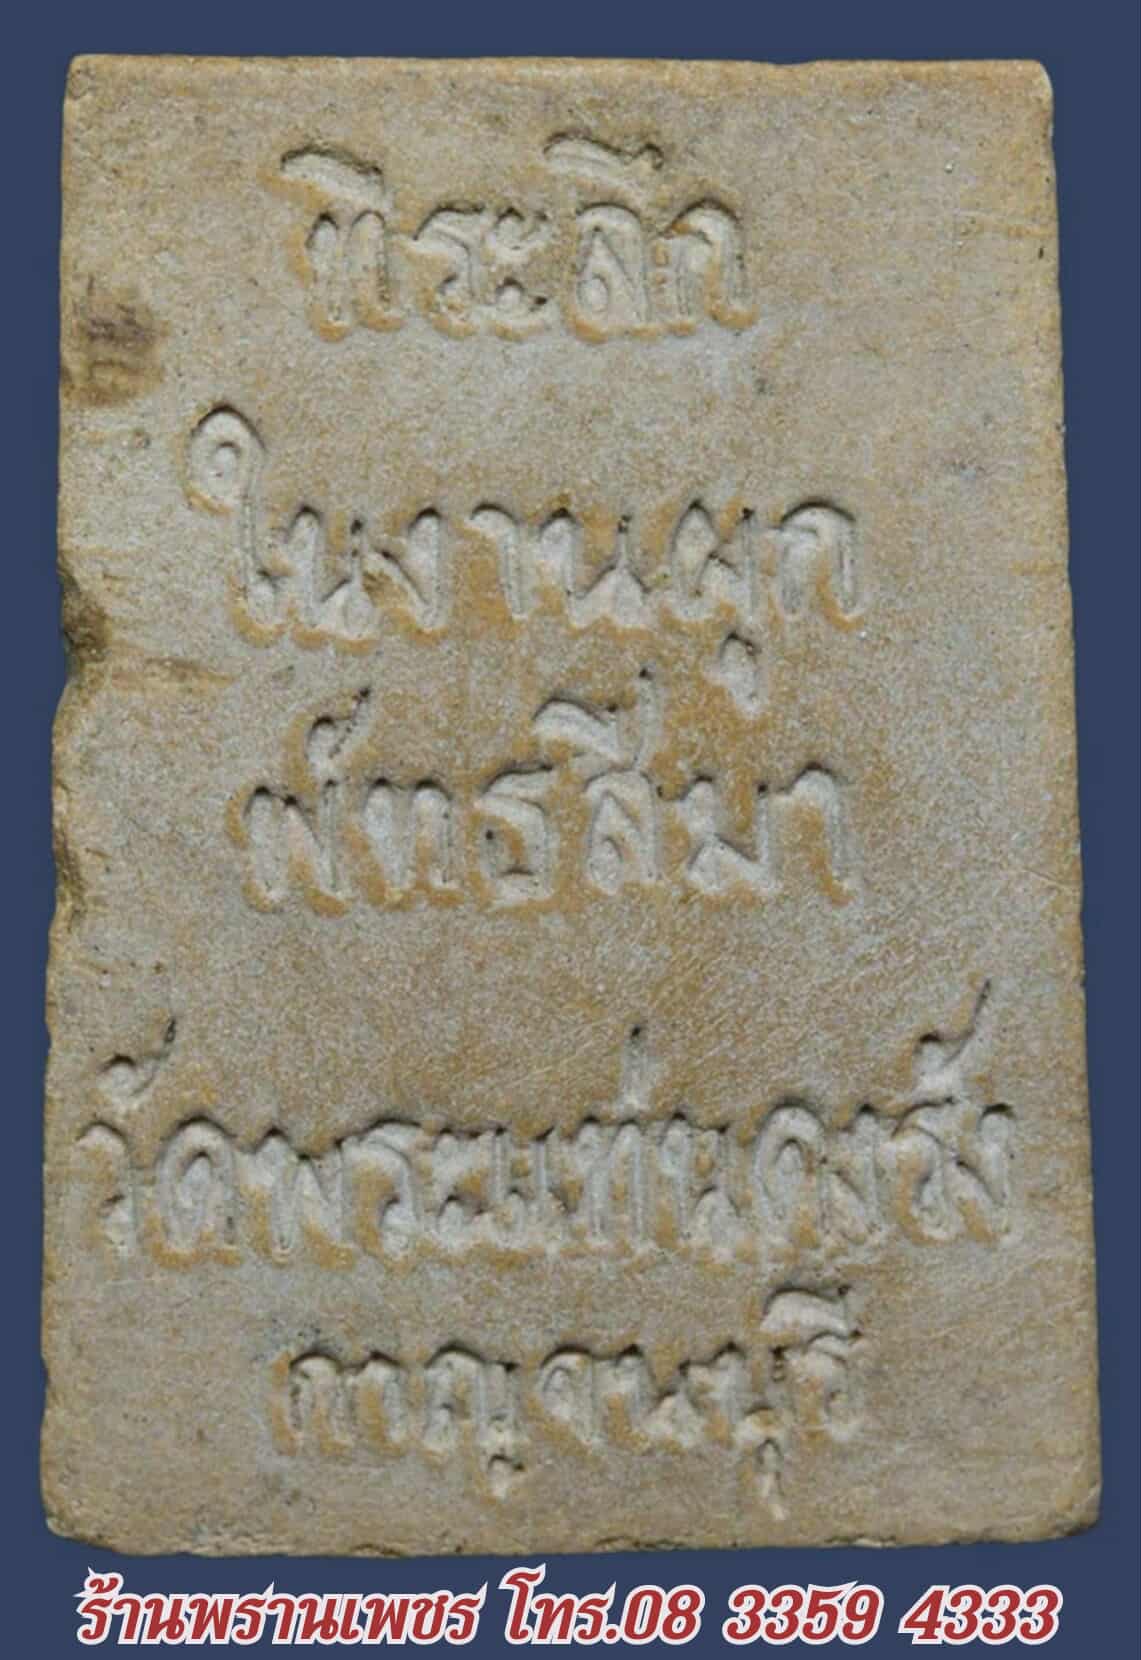 ทีระลึก
ในงานผูก
พัทธสีมา
วัดพระแท่นดงรัง
กาญจนบุรี
ร้านพรานเพชร โทร.08 3359 4333